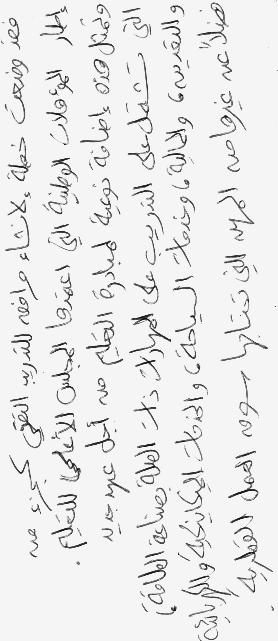 فقد وضعت خطة لإنشاء مرافق للتدريب التقني كجزء من
إطار المؤهلات الوطنية التي اعتمدها المجلس الأعلى للتعليم.
وتمثل هذه إضافة نوعية لمبادرة التعليم من أجل عهد جديد
التي تشتمل على التدريب على المهارات ذات الصلة بصناعة الطاقة،
والمالية، وخدمات السياحة، والخدمات الميكانيكية والكهربائية
فضلاً عن غيرها من المهن التي تحتاجها سوق العمل القطرية.